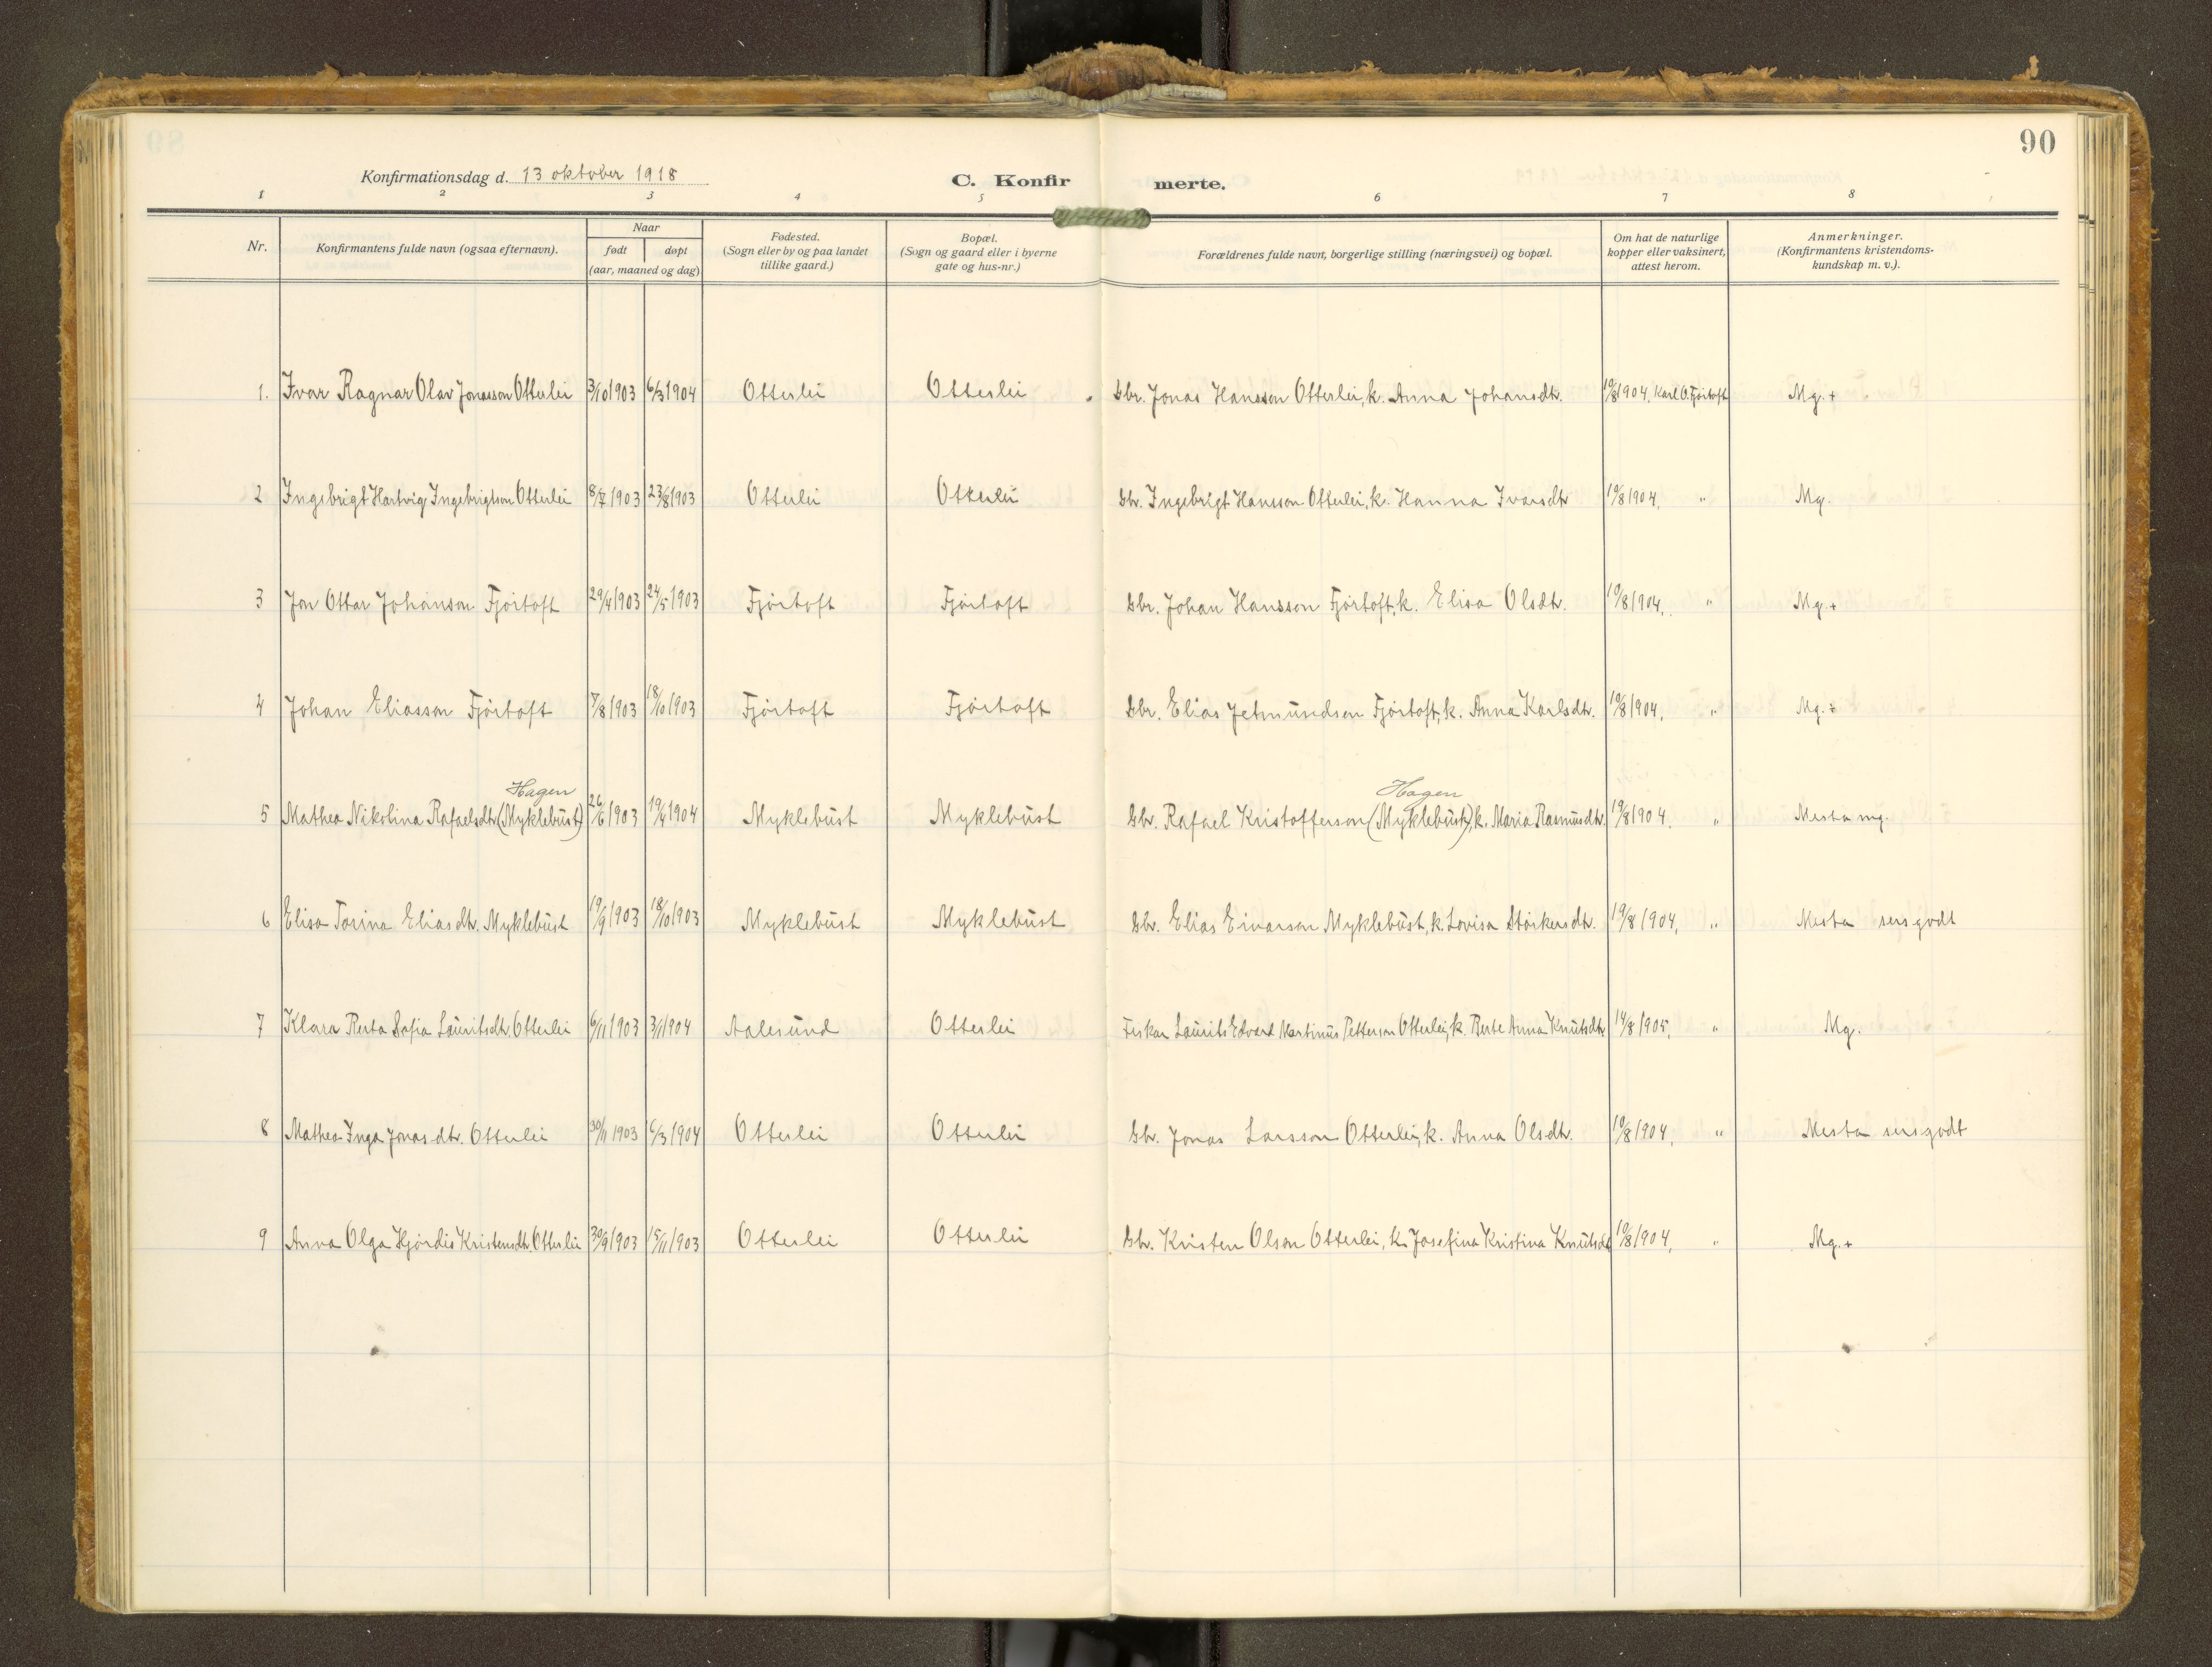 90
Konfirmationsdag d. 13 oktober 1918
C. Konfirmerte.
1 2 3 4 5 6 7 8
Nr. Konfirmantens fulde navn (ogsaa efternavn). Naar født døpt (aar, maaned og dag) Fødested. (Sogn eller by og paa landet tillike gaard.) Bopæl. (Sogn og gaard eller i byerne gate og hus-nr.) Forældrenes fulde navn, borgerlige stilling (næringsvei) og bopæl. Om hat de naturlige kopper eller vaksinert, attest herom. Anmerkninger. (Konfirmantens kristendomskundskap m. v.).
1. Ivar Ragnar Olav Jonasson Otterlei 3/10 1903 6/3 1904 Otterlei Otterlei Gbr. Jonas Hansson Otterlei, k. Anna Johansdtr. 19/8 1904, Karl O. Fjørtoft Mg. +
2 Ingebrigt Hartvig Ingebrigtson Otterlei 8/7 1903 23/8 1903 Otterlei Otterlei Gbr. Ingebrigt Hansson Otterlei, k. Hanna Ivarsdtr 19/8 1904, " Mg.
3 Jon Ottar Johanson Fjørtoft 29/4 1903 24/5 1903 Fjørtoft Fjørtoft Gbr. Johan Hansson Fjørtoft, k. Elisa Olsdtr. 19/8 1904, " Mg. +
4 Johan Eliasson Fjørtoft 7/8 1903 18/10 1903 Fjørtoft Fjørtoft Gbr. Elias Jetmundson Fjørtoft, k. Anna Karlsdtr. 19/8 1904, " Mg. ÷
Hagen Hagen
5 Mathea Nikolina Rafaelsdtr (Myklebust) 26/6 1903 19/4 1904 Myklebust Myklebust Gbr. Rafael Kristofferson (Myklebust), k. Maria Rasmusdtr. 19/8 1904. " Mesta mg.
6 Elisa Torina Eliasdtr. Myklebust 19/9 1903 18/10 1903 Myklebust Myklebust Gbr. Elias Einarson Myklebust, k. Lovisa Størkersdtr. 19/8 1904, " Mesta sers godt
7 Klara Berta Sofia Lauritsdtr Otterlei 6/11 1903 3/1 1904 Aalesund Otterlei Fiskar Laurits Edvard Martinus Petterson Otterlei, k. Berte Anna Knutsdtr 14/8 1905, " Mg.
8 Mathea Inga Jonasdtr. Otterlei 30/11 1903 6/3 1904 Otterlei Otterlei Gbr. Jonas Larsson Otterlei, k. Anna Olsdtr. 19/8 1904, " Mesta sers godt
9 Anna Olga Hjørdis Kristensdtr. Otterlei 30/9 1903 15/11 1903 Otterlei Otterlei Gbr. Kristen Olson Otterlei, k. Josefina Kristina Knutsdt 19/8 1904, " Mg. +